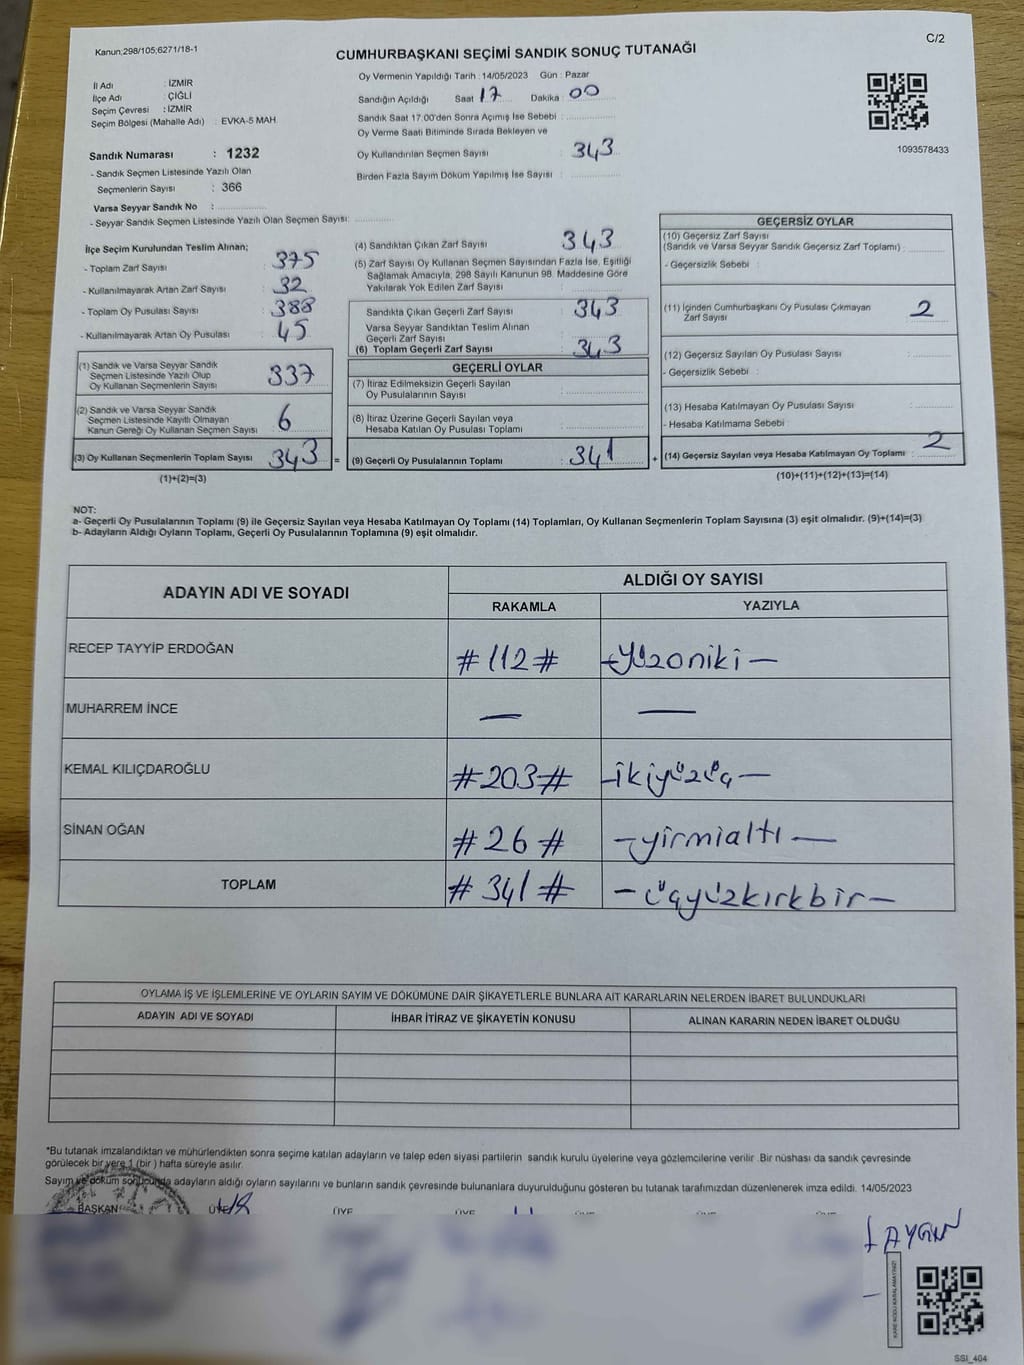 Kanun;298/105;6271/18-1
C/2
CUMHURBAŞKANI SEÇİMİ SANDIK SONUÇ TUTANAĞI
İl Adı : İZMİR
İlçe Adı : ÇİĞLİ
Seçim Çevresi : İZMİR
Seçim Bölgesi (Mahalle Adı) : EVKA-5 MAH.
Sandık Numarası : 1232
- Sandık Seçmen Listesinde Yazılı Olan
Seçmenlerin Sayısı : 366
Varsa Seyyar Sandık No :
- Seyyar Sandık Seçmen Listesinde Yazılı Olan Seçmen Sayısı:
Oy Vermenin Yapıldığı Tarih : 14/05/2023 Gün : Pazar
Sandığın Açıldığı Saat 17 Dakika : 00
Sandık Saat 17:00'den Sonra Açımış İse Sebebi :
Oy Verme Saati Bitiminde Sırada Bekleyen ve
Oy Kullandırılan Seçmen Sayısı : 343
Birden Fazla Sayım Döküm Yapılmış İse Sayısı :
1093578433
İlçe Seçim Kurulundan Teslim Alınan;
- Toplam Zarf Sayısı : 375
- Kullanılmayarak Artan Zarf Sayısı : 32
- Toplam Oy Pusulası Sayısı : 388
- Kullanılmayarak Artan Oy Pusulası : 45
(1) Sandık ve Varsa Seyyar Sandık
Seçmen Listesinde Yazılı Olup
Oy Kullanan Seçmenlerin Sayısı : 337
(2) Sandık ve Varsa Seyyar Sandık
Seçmen Listesinde Kayıtlı Olmayan
Kanun Gereği Oy Kullanan Seçmen Sayısı : 6
(3) Oy Kullanan Seçmenlerin Toplam Sayısı : 343 =
(1)+(2)=(3)
(4) Sandıktan Çıkan Zarf Sayısı : 343
(5) Zarf Sayısı Oy Kullanan Seçmen Sayısından Fazla İse, Eşitliği
Sağlamak Amacıyla, 298 Sayılı Kanunun 98. Maddesine Göre
Yakılarak Yok Edilen Zarf Sayısı :
Sandıkta Çıkan Geçerli Zarf Sayısı : 343
Varsa Seyyar Sandıktan Teslim Alınan
Geçerli Zarf Sayısı :
(6) Toplam Geçerli Zarf Sayısı : 343
GEÇERLİ OYLAR
(7) İtiraz Edilmeksizin Geçerli Sayılan
Oy Pusulalarının Sayısı :
(8) İtiraz Üzerine Geçerli Sayılan veya
Hesaba Katılan Oy Pusulası Toplamı :
(9) Geçerli Oy Pusulalarının Toplamı : 341 +
GEÇERSİZ OYLAR
(10) Geçersiz Zarf Sayısı
(Sandık ve Varsa Seyyar Sandık Geçersiz Zarf Toplamı) :
- Geçersizlik Sebebi :
(11) İçinden Cumhurbaşkanı Oy Pusulası Çıkmayan
Zarf Sayısı : 2
(12) Geçersiz Sayılan Oy Pusulası Sayısı :
- Geçersizlik Sebebi :
(13) Hesaba Katılmayan Oy Pusulası Sayısı :
- Hesaba Katılmama Sebebi :
(14) Geçersiz Sayılan veya Hesaba Katılmayan Oy Toplamı : 2
(10)+(11)+(12)+(13)=(14)
NOT:
a- Geçerli Oy Pusulalarının Toplamı (9) ile Geçersiz Sayılan veya Hesaba Katılmayan Oy Toplamı (14) Toplamları, Oy Kullanan Seçmenlerin Toplam Sayısına (3) eşit olmalıdır. (9)+(14)=(3)
b- Adayların Aldığı Oyların Toplamı, Geçerli Oy Pusulalarının Toplamına (9) eşit olmalıdır.
ADAYIN ADI VE SOYADI
ALDIĞI OY SAYISI
RAKAMLA
YAZIYLA
RECEP TAYYİP ERDOĞAN #112# -yüzoniki-
MUHARREM İNCE - -
KEMAL KILIÇDAROĞLU #203# -ikiyüzüç-
SİNAN OĞAN #26# -yirmialtı-
TOPLAM #341# -üçyüzkırkbir-
OYLAMA İŞ VE İŞLEMLERİNE VE OYLARIN SAYIM VE DÖKÜMÜNE DAİR ŞİKAYETLERLE BUNLARA AİT KARARLARIN NELERDEN İBARET BULUNDUKLARI
ADAYIN ADI VE SOYADI
İHBAR İTİRAZ VE ŞİKAYETİN KONUSU
ALINAN KARARIN NEDEN İBARET OLDUĞU
*Bu tutanak imzalandıktan ve mühürlendikten sonra seçime katılan adayların ve talep eden siyasi partilerin sandık kurulu üyelerine veya gözlemcilerine verilir. Bir nüshası da sandık çevresinde
görülecek bir yere 1 (bir) hafta süreyle asılır.
Sayım ve döküm sonucunda adayların aldığı oyların sayılarını ve bunların sandık çevresinde bulunanlara duyurulduğunu gösteren bu tutanak tarafımızdan düzenlenerek imza edildi. 14/05/2023
BAŞKAN ÜYE ÜYE ÜYE ÜYE ÜYE ÜYE
KARE KODU KARALAMAYINIZ!
SSI_404